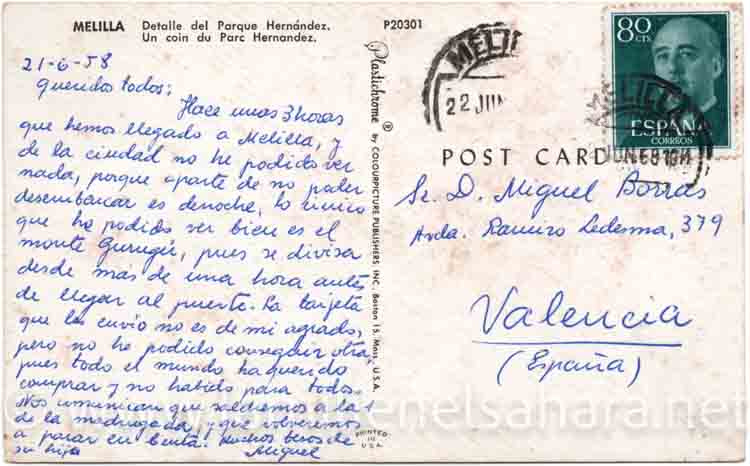 MELILLA Detalle del Parque Hernández.
Un coin du Parc Hernandez.
P20301
21-6-58
Queridos todos:
Hace unas 3 horas
que hemos llegado a Melilla, y
de la ciudad no he podido ver
nada, porque aparte de no poder
desembarcar es denoche, lo único
que he podido ver bien es el
monte Gurugú, pues se divisa
desde más de una hora antes
de llegar al puerto. La tarjeta
que les envio no es de mi agrado,
pero no he podido conseguir otra,
pues todo el mundo ha querido
comprar y no habido para todos.
Nos comunican que saldremos a la 1
de la madrugada, y que volveremos
a pasar en Ceuta. Muchos besos de
su hijo Miguel
Plastichrome ® by COLOURPICTURE PUBLISHERS INC. Boston 15, Mass., U.S.A.
PRINTED
IN
U.S.A.
22 JUN
80 CTS
ESPAÑA
CORREOS
POST CARD
Sr. D. Miguel Borras
Avda. Ramiro Ledesma, 379
Valencia
(España)